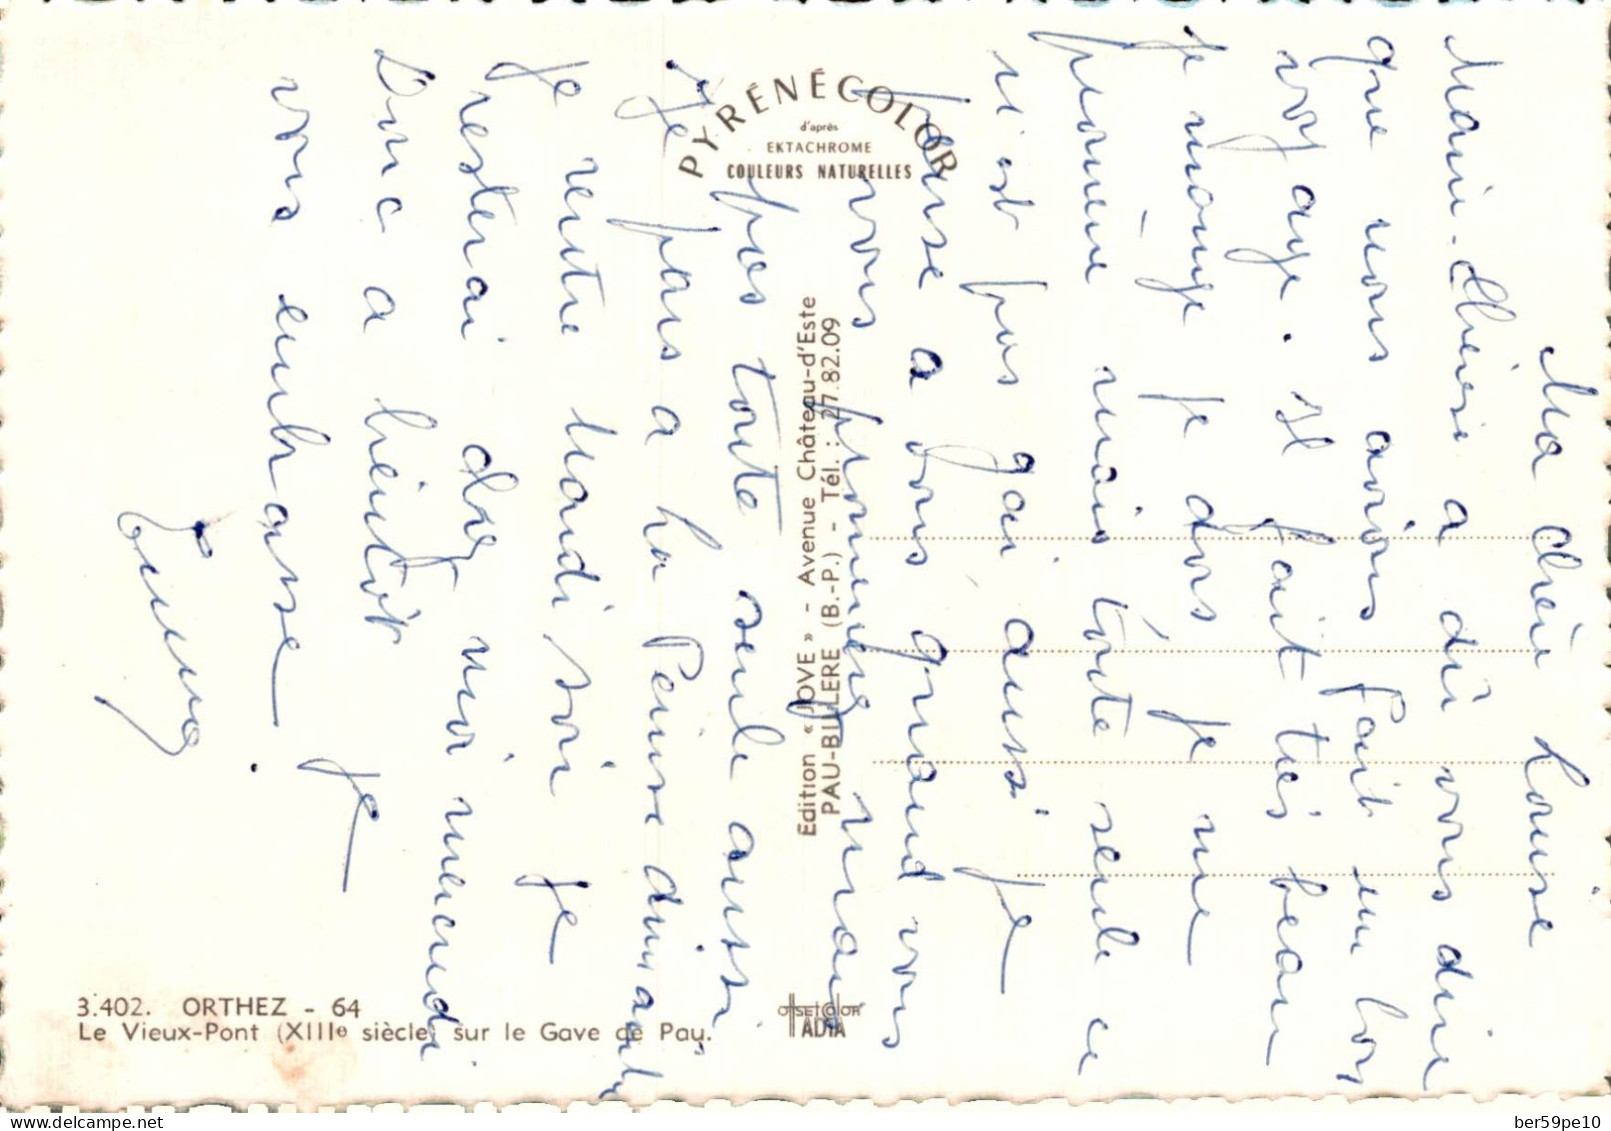 Ma chère Louise
Marie-Thérèse a dû vous dire
que nous avions fait un bon
voyage. Il fait très beau
je mange je dors je me
promène mais toute seule ce
n'est pas gai aussi je
pense a vous quand vous
vous promenez mais
pas toute seule aussi
Je pars a la Peine dimanche
Je rentre Mardi soir je
resterai chez moi mercredi
Donc a bientôt je
vous embrasse.
PYRÉNÉCOLOR
d'après
EKTACHROME
COULEURS NATURELLES
Edition « JOVE » - Avenue Château-d'Este
PAU-BILLERE (B.-P.) - Tél. : 27.82.09
3.402. ORTHEZ - 64
Le Vieux-Pont (XIIIe siècle) sur le Gave de Pau.
OFFSETCOLOR
ADIA
delcampe.net
ber59pe10